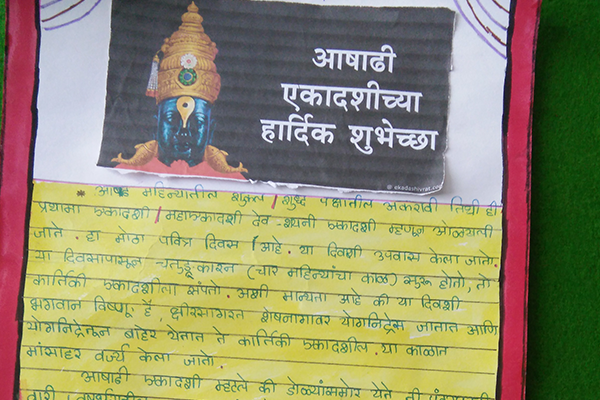 आषाढी
एकादशीच्या
हार्दिक शुभेच्छा
© ekadashivrat.com
* आषाढ महिन्यातील शुक्ल / शुध्द पक्षातील अकरावी तिथी ही
प्रथमा एकादशी / महाएकादशी देव-शयनी एकादशी म्हणून ओळखली
जाते. हा मोठा पवित्र दिवस आहे. या दिवशी उपवास केला जातो.
या दिवसापासून (चार महिन्यांचा काळ) सुरू होतो, तो
कार्तिकी एकादशीला संपतो. अशी मान्यता आहे की या दिवशी
भगवान विष्णू हे, क्षीरसागरात शेषनागावर योगनिद्रेस जातात आणि
योगनिद्रेतून बाहेर येतात ते कार्तिकी एकादशीला. या काळात
मांसाहर वर्ज्य केला जातो.
आषाढी एकादशी म्हटले की डोळ्यांसमोर येते ती
वारी